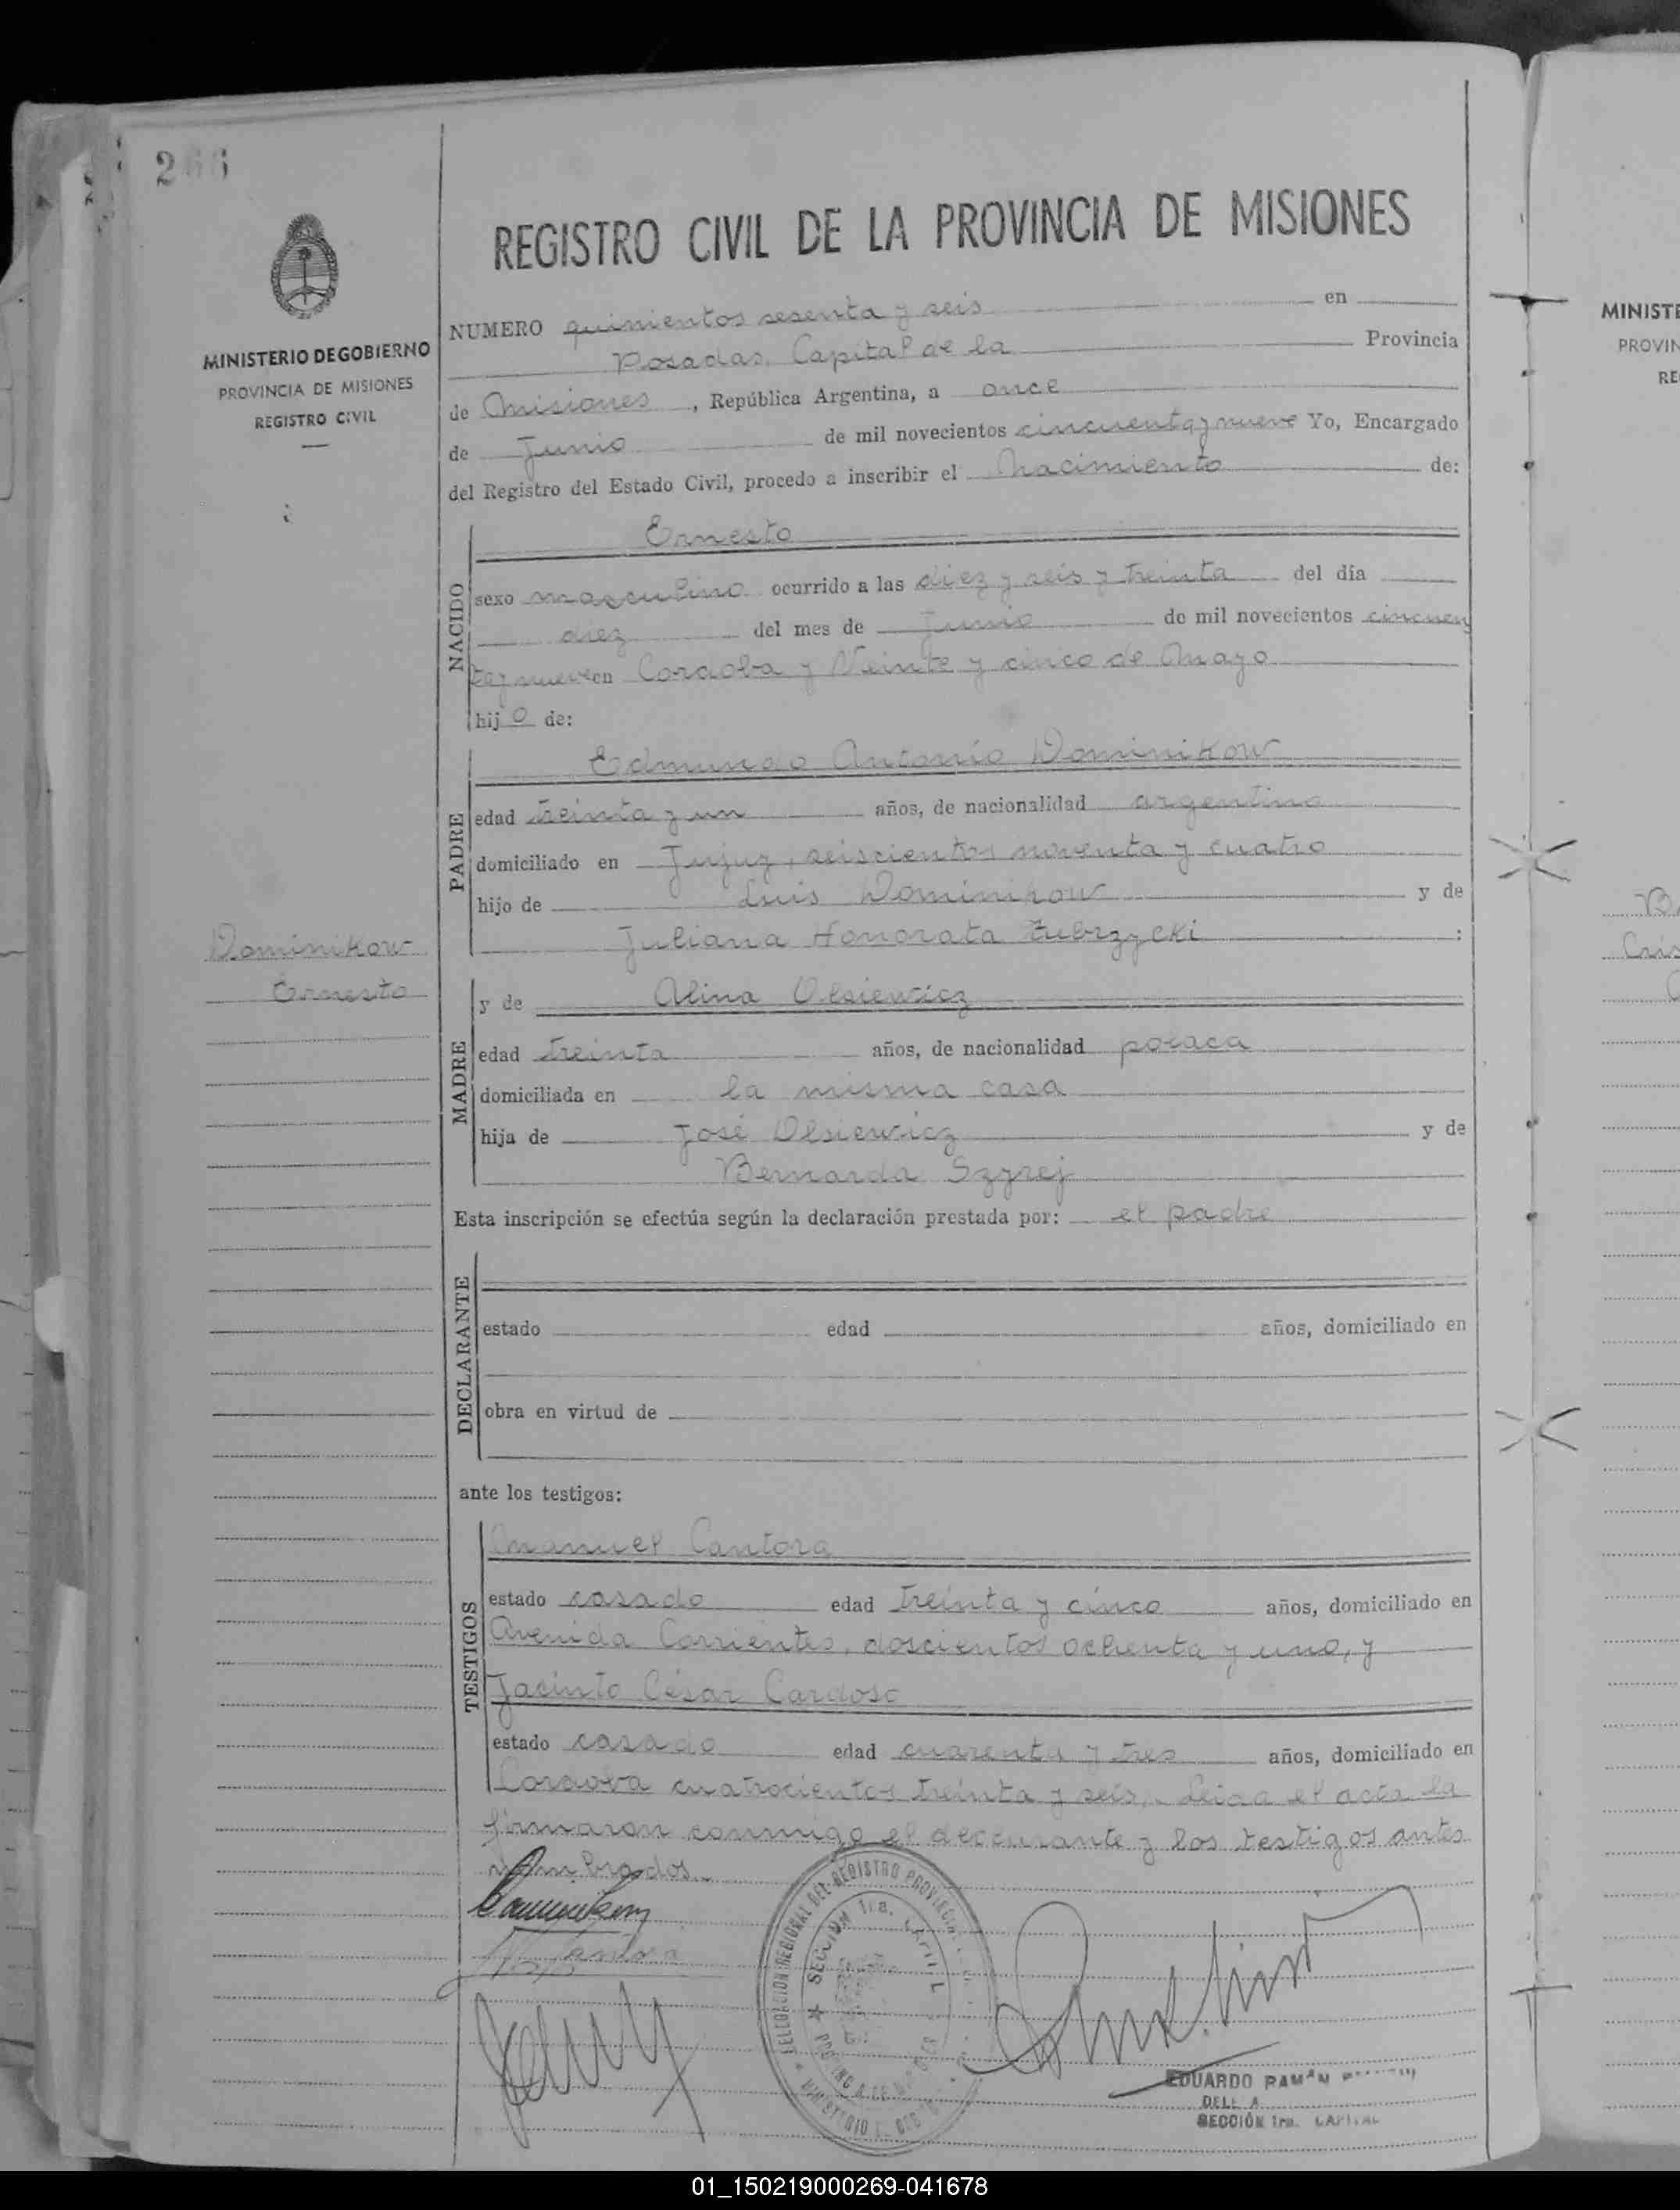 266
MINISTERIO DE GOBIERNO
PROVINCIA DE MISIONES
REGISTRO CIVIL
Dominikow
Ernesto
REGISTRO CIVIL DE LA PROVINCIA DE MISIONES
NUMERO quinientos sesenta y seis en
Posadas, Capital de la Provincia
de Misiones, República Argentina, a once
de Junio de mil novecientos cincuenta y nueve Yo, Encargado
del Registro del Estado Civil, procedo a inscribir el Nacimiento de:
NACIDO
Ernesto
sexo masculino ocurrido a las diez y seis y treinta del día
diez del mes de Junio de mil novecientos cincuen
ta y nueve en Cordoba y Veinte y cinco de Mayo
hijo de:
PADRE
Edmundo Antonio Dominikow
edad treinta y un años, de nacionalidad argentino
domiciliado en Jujuy, seiscientos noventa y cuatro
hijo de Luis Dominikow y de
Juliana Honorata Zubrzycki :
MADRE
y de Alina Olsiewicz
edad treinta años, de nacionalidad polaca
domiciliada en la misma casa
hija de José Olsiewicz y de
Bernarda Szyrej
Esta inscripción se efectúa según la declaración prestada por: el padre
DECLARANTE
estado edad años, domiciliado en
obra en virtud de
ante los testigos:
TESTIGOS
Manuel Cantora
estado casado edad treinta y cinco años, domiciliado en
Avenida Corrientes, doscientos ochenta y uno, y
Jacinto César Cardoso
estado casado edad cuarenta y tres años, domiciliado en
Cordova cuatrocientos treinta y seis. Leida el acta la
firmaron conmigo el declarante y los testigos antes
nombrados.
DELEGACION REGIONAL DEL REGISTRO PROVINCIAL
SECCION 1ra.
EDUARDO RAMÓN
SECCIÓN 1ra. CAPITAL
MINISTE
PROVIN
RE
Cris
01_150219000269-041678